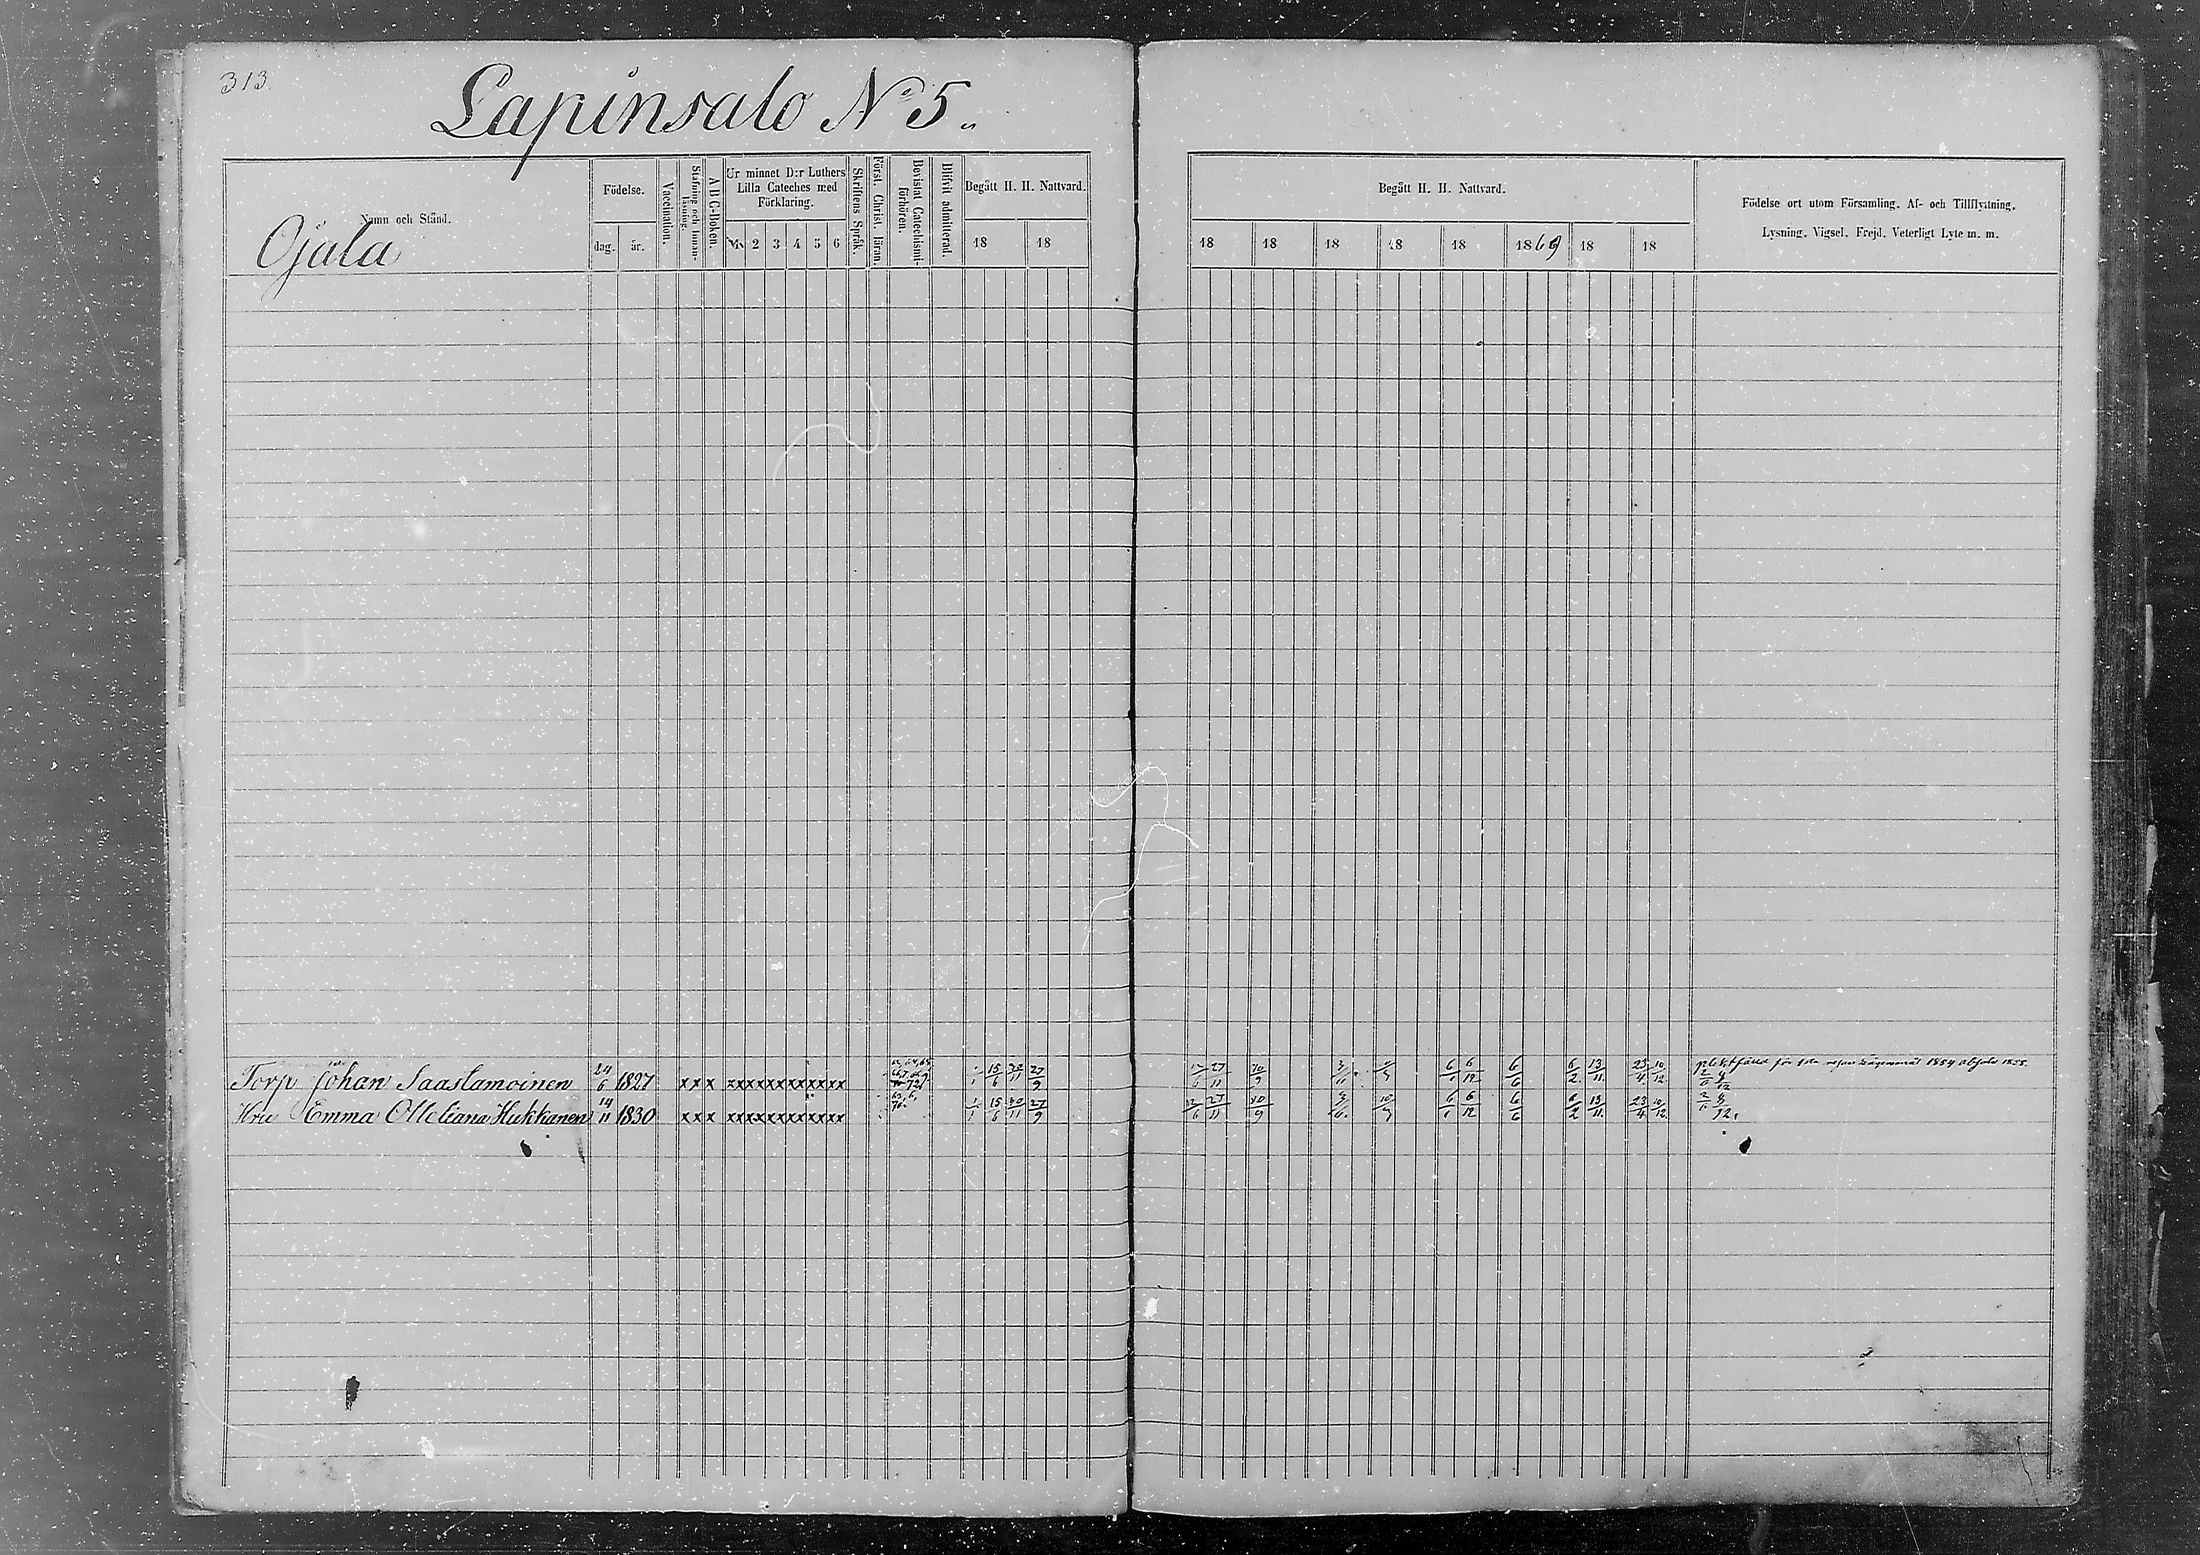 313.
Lapinsalo No 5.
Ojala
Namn och Stånd.
Födelse.
dag. år.
Vaccination.
Stafning och Innan-läsning.
A B C-Boken.
Ur minnet D:r Luthers Lilla Cateches med Förklaring.
1 2 3 4 5 6
Skriftens Språk.
Först. Christ. läran.
Bevistat Catechismi-förhören.
Blifvit admitterad.
Begått H. H. Nattvard.
18 18
Begått H. H. Nattvard.
18 18 18 18 18 1869 18 18
Födelse ort utom Församling. Af- och Tillflyttning.
Lysning. Vigsel. Frejd. Veterligt Lyte m. m.
Torp Johan Saastamoinen 24/6 1827 x x x xxxxxxxxxxxx 15/6 30/11 27/9 27/11 6/1 6/12 6/6 6/2 13/11 23/4 10/12 1854 1855.
Hru Emma Otteliana Hukkanen 14/11 1830 x x x xxxxxxxxxxxx 1/1 15/6 30/11 27/9 12/6 27/11 10/9 6/1 6/12 6/6 6/2 13/11 23/4 10/12